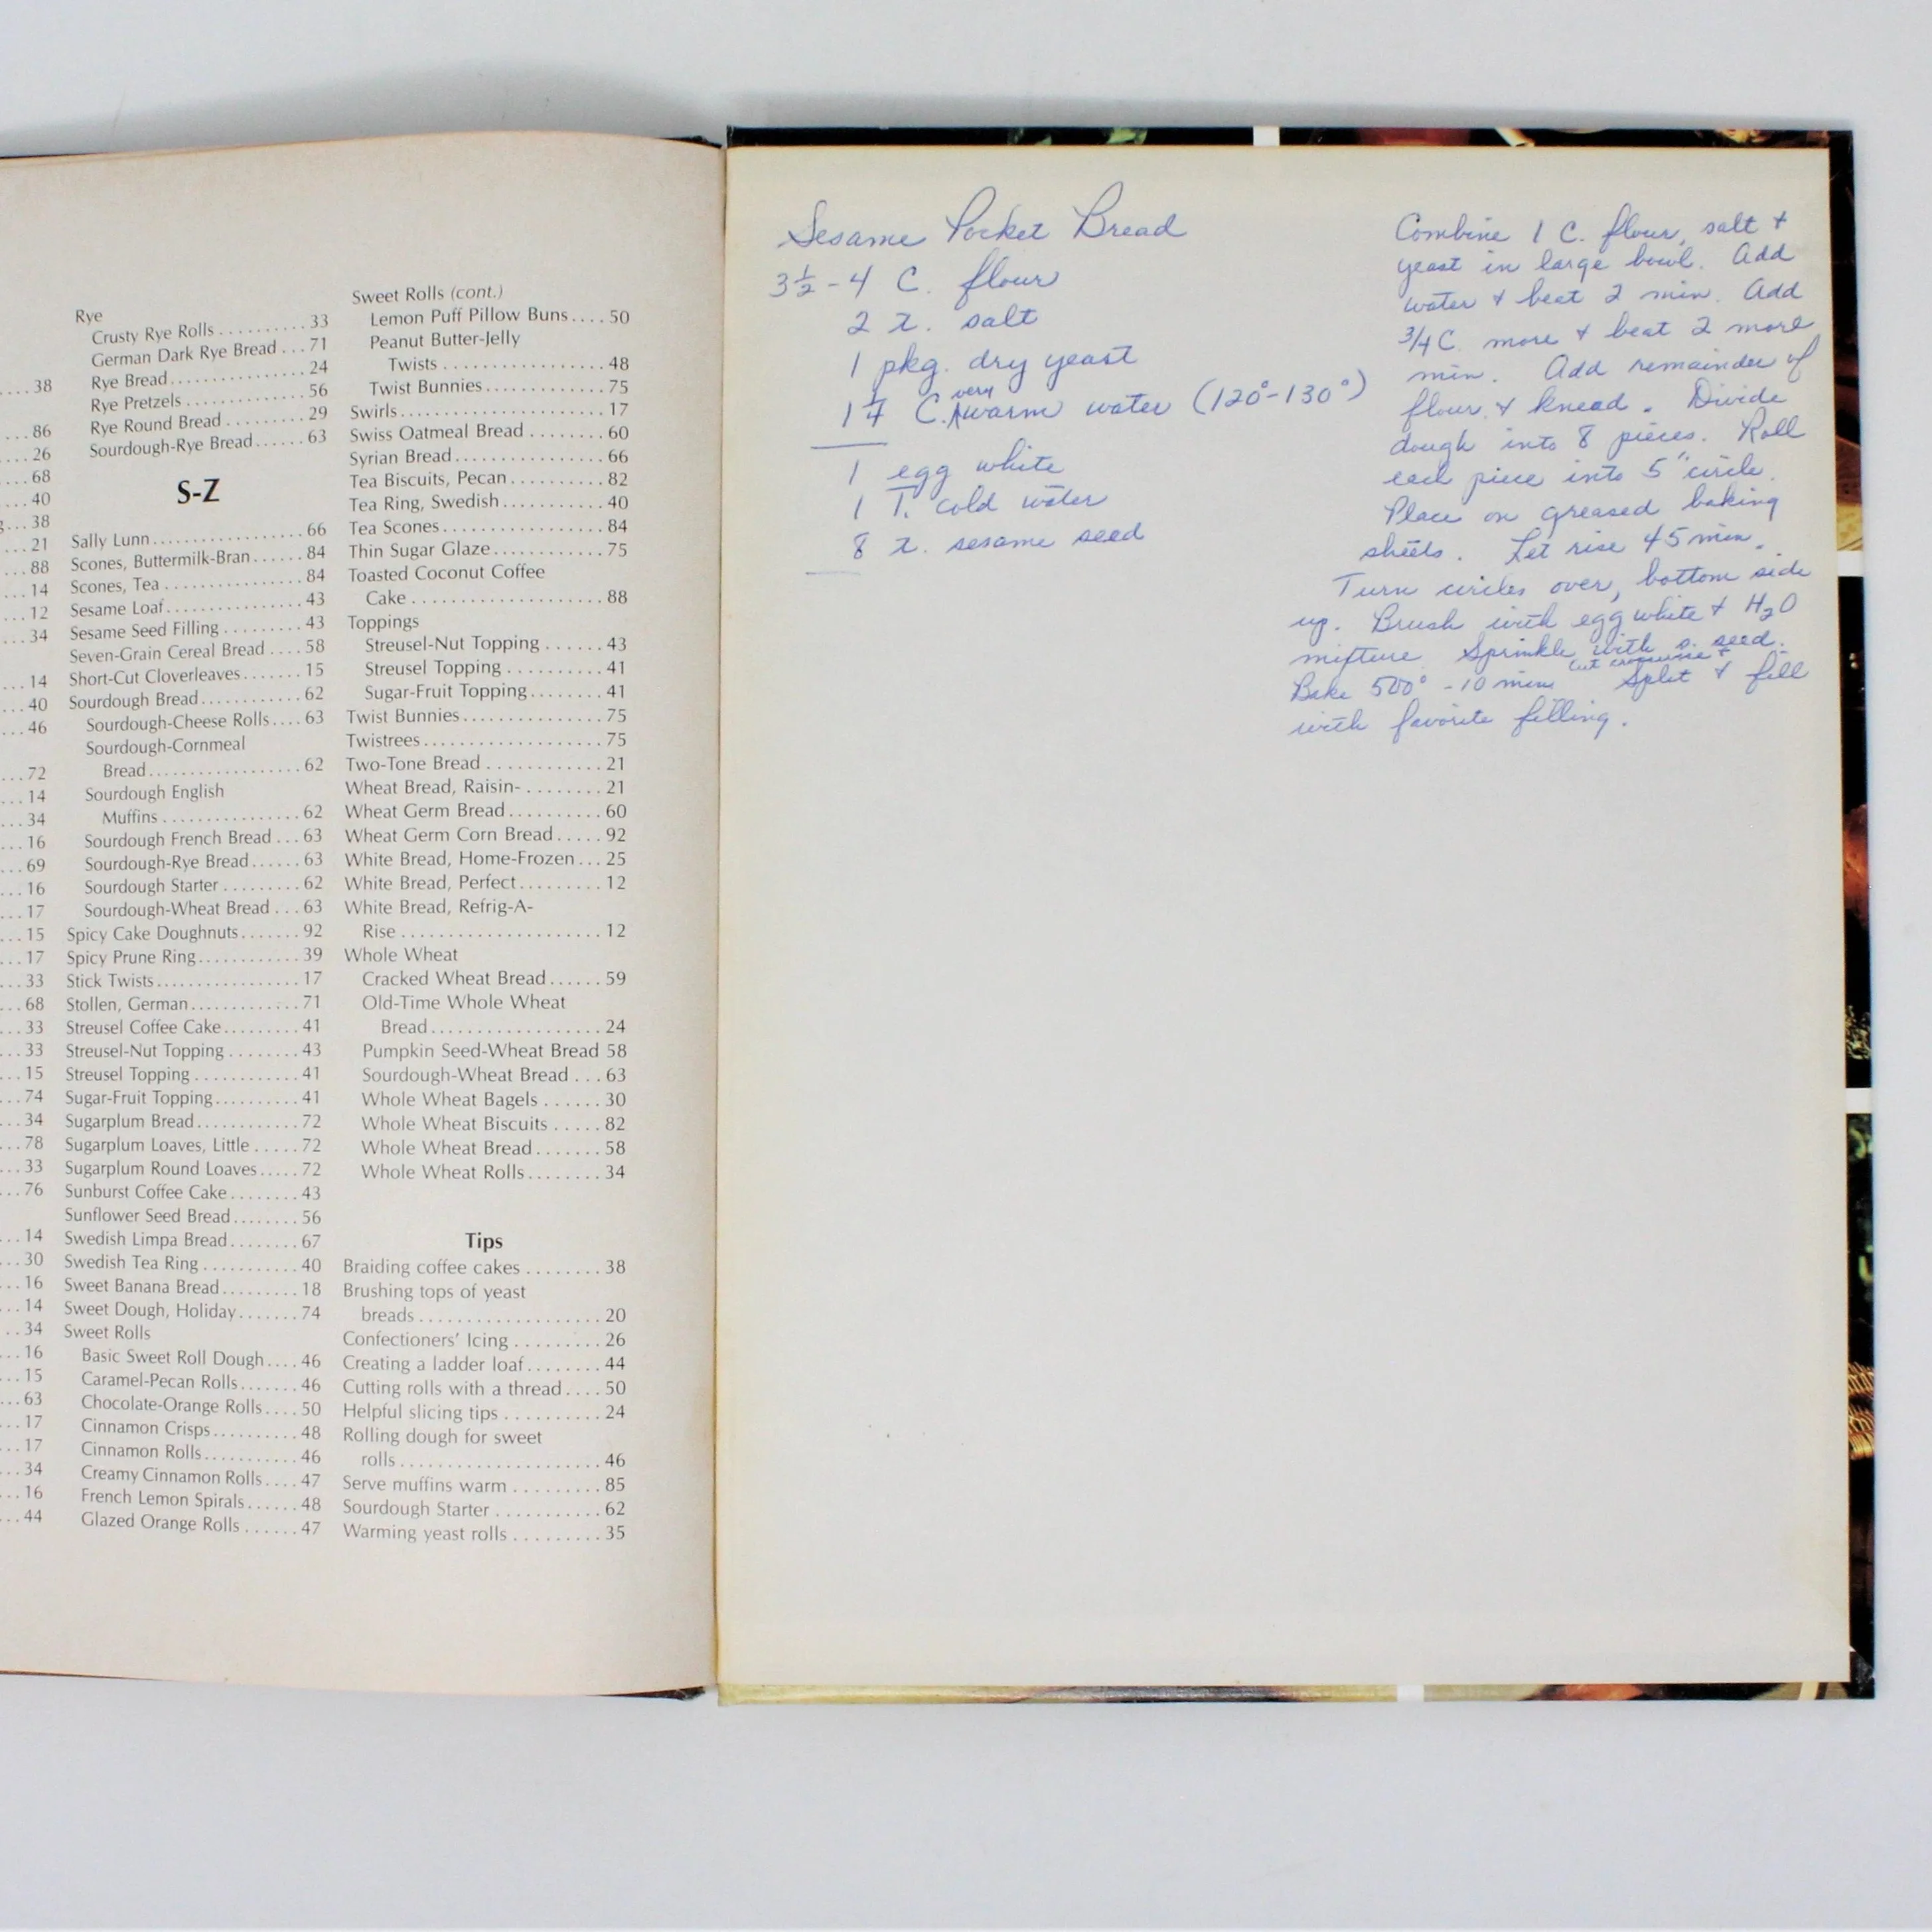 ...38
...86
...26
...68
...40
...38
...21
...88
...14
...12
...34
...14
...40
...46
...72
...14
...34
...16
...69
...16
...17
...15
...17
...33
...68
...33
...33
...15
...74
...34
...78
...33
...76
...14
...30
...16
...14
..34
...16
...15
...63
...17
...17
...34
...16
...44
Rye
Crusty Rye Rolls..........33
German Dark Rye Bread...71
Rye Bread................24
Rye Pretzels...............56
Rye Round Bread.........29
Sourdough-Rye Bread......63
S-Z
Sally Lunn..................66
Scones, Buttermilk-Bran....84
Scones, Tea................84
Sesame Loaf................43
Sesame Seed Filling.........43
Seven-Grain Cereal Bread....58
Short-Cut Cloverleaves.......15
Sourdough Bread............62
Sourdough-Cheese Rolls....63
Sourdough-Cornmeal
Bread..................62
Sourdough English
Muffins................62
Sourdough French Bread...63
Sourdough-Rye Bread......63
Sourdough Starter.........62
Sourdough-Wheat Bread...63
Spicy Cake Doughnuts.......92
Spicy Prune Ring............39
Stick Twists.................17
Stollen, German.............71
Streusel Coffee Cake.........41
Streusel-Nut Topping........43
Streusel Topping............41
Sugar-Fruit Topping..........41
Sugarplum Bread............72
Sugarplum Loaves, Little.....72
Sugarplum Round Loaves.....72
Sunburst Coffee Cake........43
Sunflower Seed Bread........56
Swedish Limpa Bread........67
Swedish Tea Ring...........40
Sweet Banana Bread.........18
Sweet Dough, Holiday.......74
Sweet Rolls
Basic Sweet Roll Dough....46
Caramel-Pecan Rolls.......46
Chocolate-Orange Rolls....50
Cinnamon Crisps..........48
Cinnamon Rolls...........46
Creamy Cinnamon Rolls....47
French Lemon Spirals......48
Glazed Orange Rolls......47
Sweet Rolls (cont.)
Lemon Puff Pillow Buns....50
Peanut Butter-Jelly
Twists.................48
Twist Bunnies.............75
Swirls......................17
Swiss Oatmeal Bread........60
Syrian Bread................66
Tea Biscuits, Pecan..........82
Tea Ring, Swedish...........40
Tea Scones.................84
Thin Sugar Glaze............75
Toasted Coconut Coffee
Cake....................88
Toppings
Streusel-Nut Topping......43
Streusel Topping..........41
Sugar-Fruit Topping........41
Twist Bunnies...............75
Twistrees...................75
Two-Tone Bread............21
Wheat Bread, Raisin-........21
Wheat Germ Bread..........60
Wheat Germ Corn Bread.....92
White Bread, Home-Frozen...25
White Bread, Perfect.........12
White Bread, Refrig-A-
Rise.....................12
Whole Wheat
Cracked Wheat Bread......59
Old-Time Whole Wheat
Bread..................24
Pumpkin Seed-Wheat Bread 58
Sourdough-Wheat Bread...63
Whole Wheat Bagels......30
Whole Wheat Biscuits.....82
Whole Wheat Bread.......58
Whole Wheat Rolls........34
Tips
Braiding coffee cakes........38
Brushing tops of yeast
breads...................20
Confectioners' Icing.........26
Creating a ladder loaf........44
Cutting rolls with a thread....50
Helpful slicing tips..........24
Rolling dough for sweet
rolls.....................46
Serve muffins warm.........85
Sourdough Starter...........62
Warming yeast rolls.........35
Sesame Pocket Bread
3½-4 C. flour
2 t. salt
1 pkg. dry yeast
C. very warm water (120°-130°)
1 egg white
1 T. cold water
8 t. sesame seed
Combine 1 C. flour, salt +
yeast in large bowl. Add
water + beat 2 min. Add
3/4 C. more + beat 2 more
min. Add remainder of
flour + knead. Divide
dough into 8 pieces. Roll
each piece into 5" circle.
Place on greased baking
sheets. Let rise 45 min.
Turn circles over, bottom side
up. Brush with egg white + H2O
mixture. Sprinkle with s. seed.
cut crosswise +
Bake 500° - 10 min. Split + fill
with favorite filling.